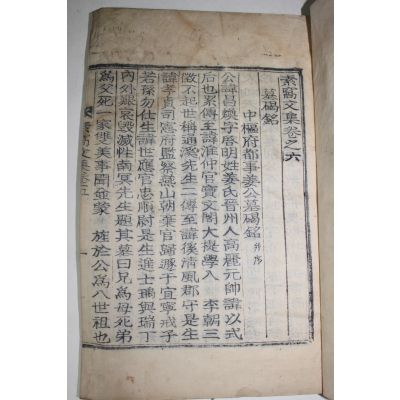 素窩文集卷之六
墓碣銘
中樞府都事姜公墓碣銘 幷序
公諱昌煥字啓明姓姜氏晉州人高麗元帥諱以式
后也累傳至諱淮仲官寶文閣大提學入 李朝三
徵不起世稱通溪先生二傳至諱後清風郡守是生
諱孝貞司憲府監察燕山朝棄官歸遯于宜寧戒子
若孫勿仕生諱世應官忠順尉是生進士瑀與瑞丁
內外艱哀毀滅性南冥先生題其墓曰兄爲母死弟
爲父死一家雙美事圖金蒙 旌於公爲八世祖也
素窩文集卷五